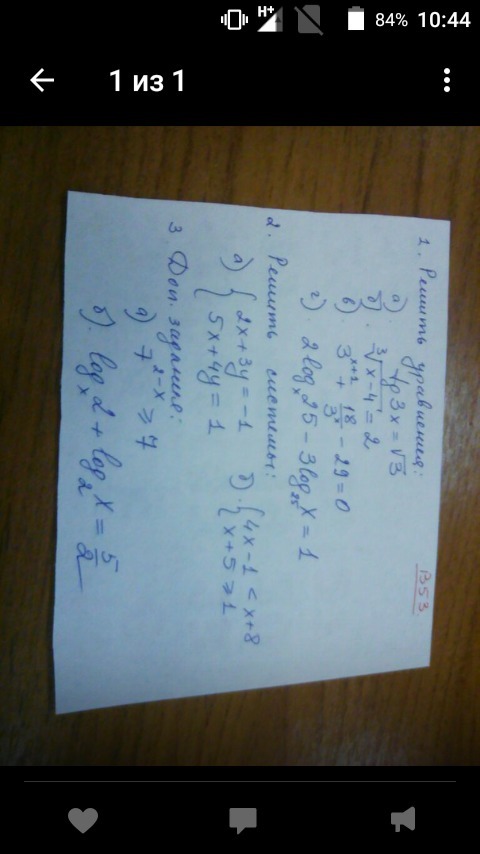 H+
84% 10:44
1 из 1
В53
1. Решить уравнения:
а). tg3x = √3
б). ∛x-4 = 2
в) 3ˣ⁺¹ + 18/3ˣ - 29 = 0
г). 2logₓ25 - 3log₂₅x = 1
2. Решить системы:
а) { 2x + 3y = -1
5x + 4y = 1
б). { 4x - 1 < x + 8
x + 5 ≥ 1
3. Доп. задание:
а) 7²⁻ˣ ≥ 7
б). logₓ2 + log₂x = 5/2